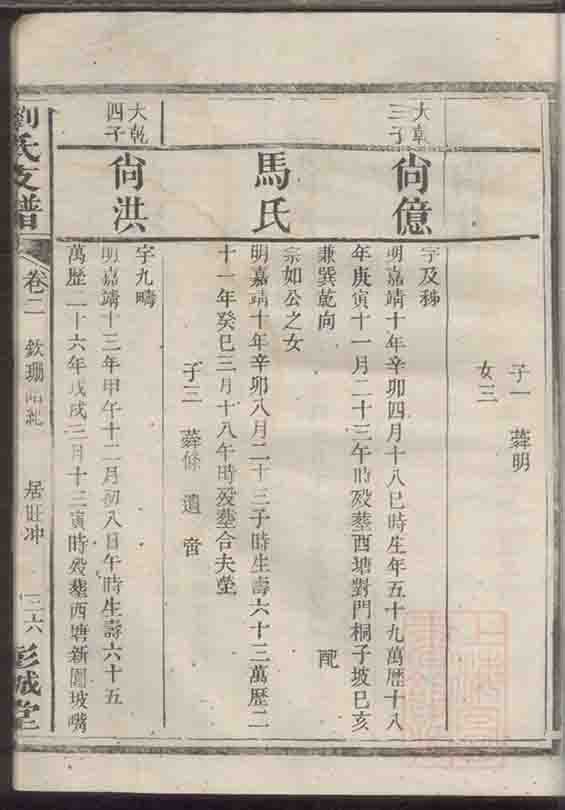 子一 蓉明
女三
大乾
三子
尙億
字及秭
明嘉靖十年辛卯四月十八巳時生年五十九萬歷十八
年庚寅十一月二十三午時殁塟西塘對門桐子坡巳亥
兼巽乾向 配
馬氏
宗如公之女
明嘉靖十年辛卯八月二十三子時生壽六十三萬歷二
十一年癸巳三月十八午時殁塟合夫塋
子三 蓉條 遺
大乾
四子
尙洪
字九疇
明嘉靖十三年甲午十二月初八日午時生壽六十五
萬歷二十六年戊戌三月十三寅時殁塟西塘新園坡嘴
劉氏支譜
卷二
欽珊
居旺冲
三六
彭城堂